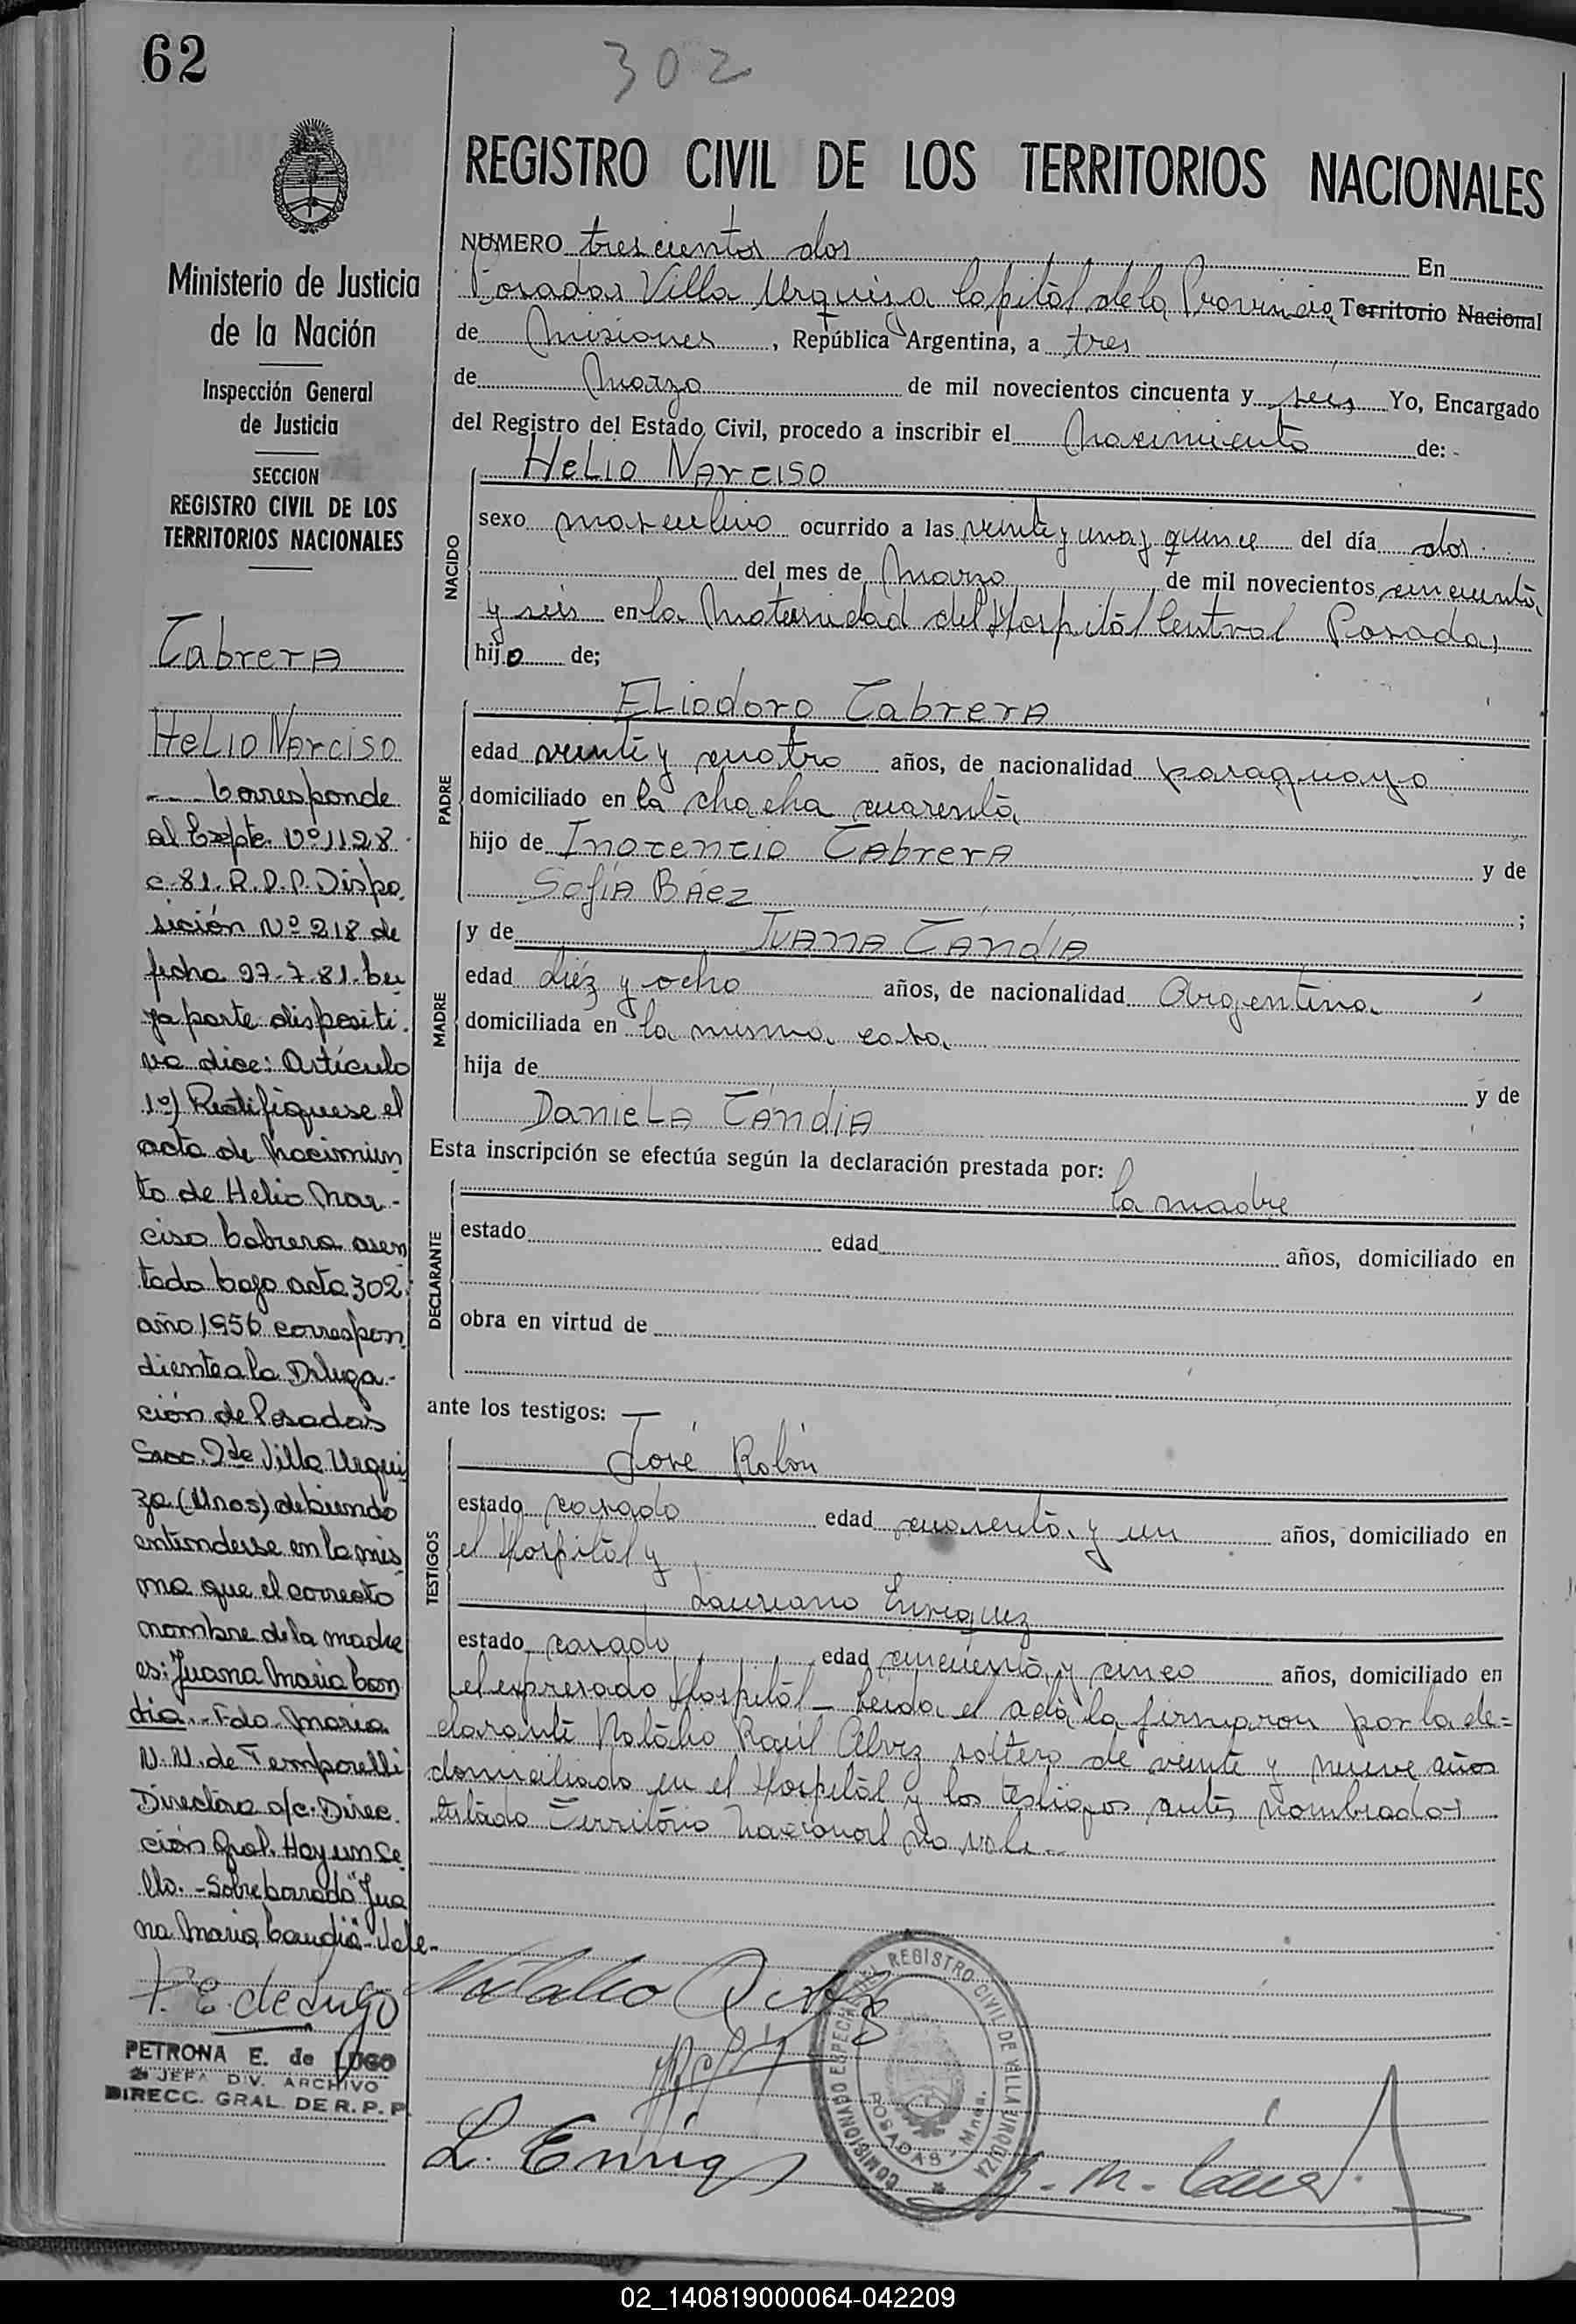 62
302
REGISTRO CIVIL DE LOS TERRITORIOS NACIONALES
NUMERO trescientos dos En
Posadas Villa Urquiza Capital de la Provincia Territorio Nacional
de Misiones, República Argentina, a tres
de Marzo de mil novecientos cincuenta y seis Yo, Encargado
del Registro del Estado Civil, procedo a inscribir el Nacimiento de: -
NACIDO
Helio Narciso
sexo masculino ocurrido a las veinte y una y quince del día dos
del mes de Marzo de mil novecientos cincuenta
y seis en la Maternidad del Hospital Central Posadas
hijo de;
PADRE
Eliodoro Cabrera
edad veinte y cuatro años, de nacionalidad paraguayo
domiciliado en la chacha cuarenta
hijo de Inocencio Cabrera y de
Sofía Báez ;
MADRE
y de Juana Candia
edad diéz y ocho años, de nacionalidad Argentina
domiciliada en la misma casa
hija de y de
Daniela Cándia
Esta inscripción se efectúa según la declaración prestada por:
la madre
DECLARANTE
estado edad años, domiciliado en
obra en virtud de
ante los testigos:
TESTIGOS
José Robin
estado casado edad cuarenta y un años, domiciliado en
el Hospital y
Laureano Enriquez
estado casado edad cincuenta y cinco años, domiciliado en
el expresado Hospital - Leida el acta la firmaron por la de=
clarante Natalio Raúl Alvez soltero de veinte y nueve años
domiciliado en el Hospital y los testigos antes nombrados
Testado Territorio Nacional no vale
Ministerio de Justicia
de la Nación
Inspección General
de Justicia
SECCION
REGISTRO CIVIL DE LOS
TERRITORIOS NACIONALES
Cabrera
Helio Narciso
-- Corresponde
al Expte. Nº 1128
c-81. R.P.P. Dispo
sición Nº 218 de
fecha 27-7-81. Cu
ya parte dispositi
va dice: Artículo
1º) Rectifíquese el
acta de Nacimien
to de Helio Nar-
ciso Cabrera asen
tada bajo acta 302
año 1956 correspon
diente a la Delega-
ción de Posadas
Secc. 2da Villa Urqui
za (Mnes) debiendo
entenderse en la mis
ma que el correcto
nombre de la madre
es: Juana Maria Can
dia.- Fdo. Maria
N.N. de Temporelli
Directora a/c. Direc
ción Gral. Hay un Se
llo.- Sobreborrado "Jua
na Maria Candia" - Vale -
P. E. de Lugo
PETRONA E. de LUGO
JEFA DIV. ARCHIVO
DIRECC. GRAL. DE R. P. P.
L. Enriq
COMISIONADO ESPECIAL DEL REGISTRO CIVIL DE VILLA URQUIZA
POSADAS - Mnes.
02_140819000064-042209